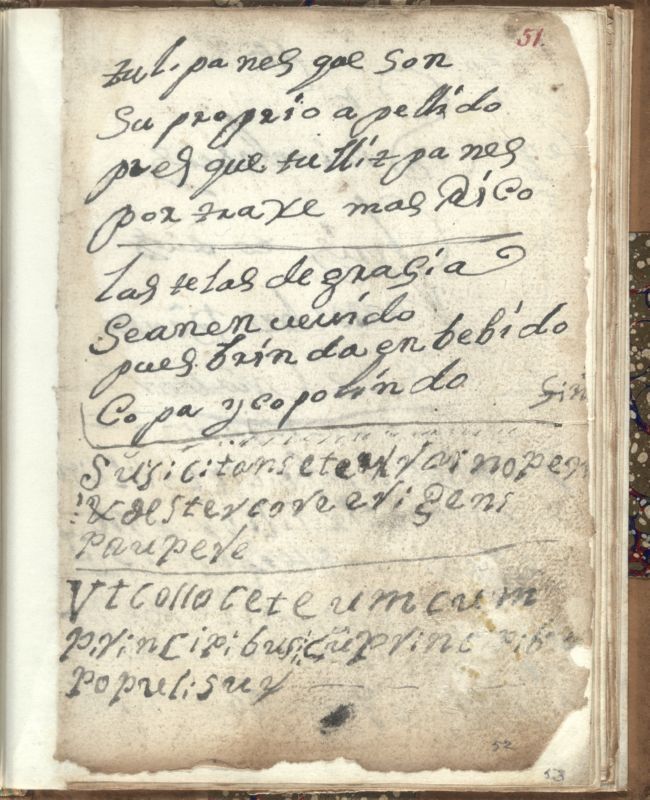 51
tulipanes que son
su proprio apellido
pues que tullitpanes
por traxe mas Rico
las telas de grasia
Sean en
pues brinda en bebido
Copa y
Sin
Susicitans
& destercore erigens
paupere
Vt collocet eum cum
principibus cu princ
populi suy
52
53